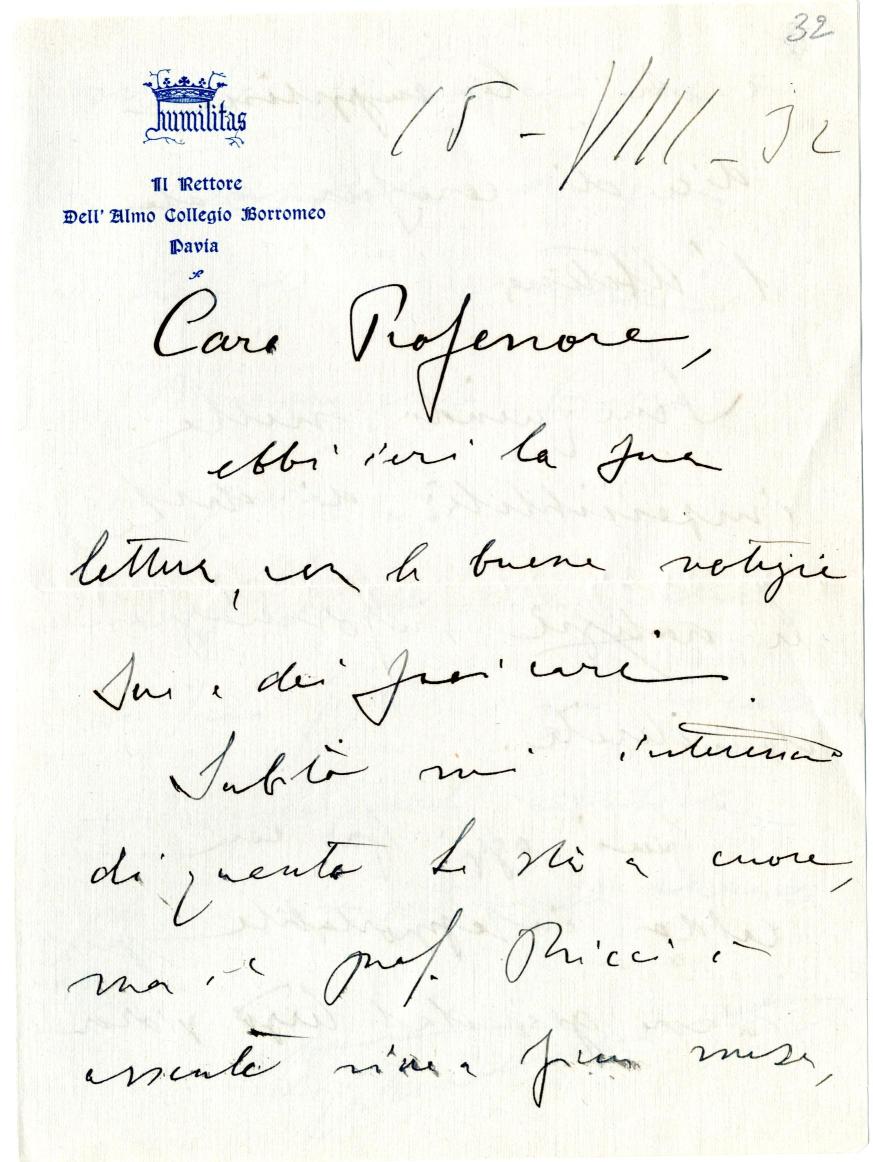 32
humilitas
15-VIII-32
Il Rettore
Dell' Almo Collegio Borromeo
Pavia
Caro Professore,
ebbi ieri la sua
lettera, con le buone notizie
Sue e dei suoi cari.
Subito mi interessai
di quanto Le stà a cuore,
ma il prof. Ricci è
assente sino a fine mese,